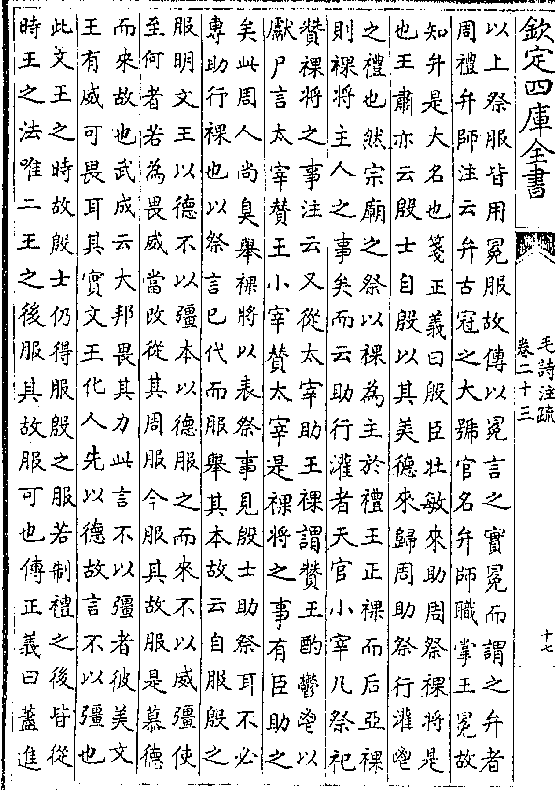 欽定四庫全書
毛詩注疏
卷二十三
十七
以上祭服皆用冕服故傳以冕言之實冕而謂之弁者
周禮弁師注云弁古冠之大號官名弁師職掌王冕故
知弁是大名也箋正義曰殷臣壯敏來助周祭祼將是
也王肅亦云殷士自殷以其美德來歸周助祭行灌鬯
之禮也然宗廟之祭以祼為主於禮王正祼而后亞祼
則祼將主人之事矣而云助行灌者天官小宰凡祭祀
贊祼將之事注云又從太宰助王祼謂贊王酌鬱鬯以
獻尸言太宰贊王小宰贊太宰是祼將之事有臣助之
矣此周人尚臭舉祼將以表祭事見殷士助祭耳不必
專助行祼也以祭言已代而服舉其本故云自服殷之
服明文王以德不以彊本以德服之而來不以威彊使
至何者若為畏威當改從其周服今服其故服是慕德
而來故也武成云大邦畏其力此言不以彊者彼美文
王有威可畏耳其實文王化人先以德故言不以彊也
此文王之時故殷士仍得服殷之服若制禮之後皆從
時王之法唯二王之後服其故服可也傳正義曰蓋進